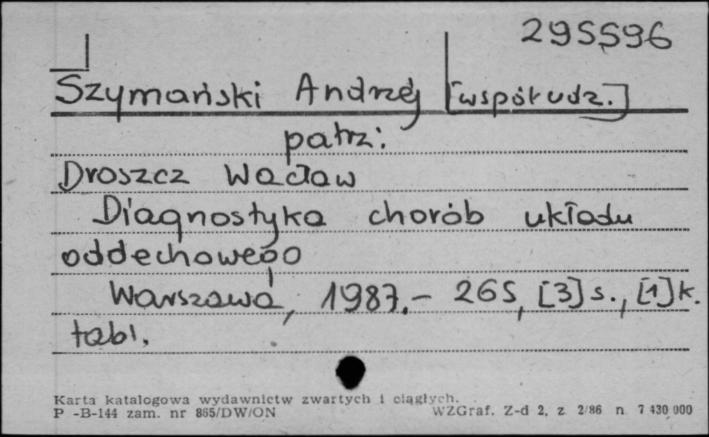 295596
Szymański Andrzej [współudz.]
patrz:
Droszcz Wacław
Diagnostyka chorób układu
oddechowego
Warszawa, 1987.- 265, [3] s., [1] k.
tabl.
Karta katalogowa wydawnictw zwartych i ciągłych.
P -B-144 zam. nr 865/DW/ON WZGraf. Z-d 2, z. 2/86 n. 7 430 000